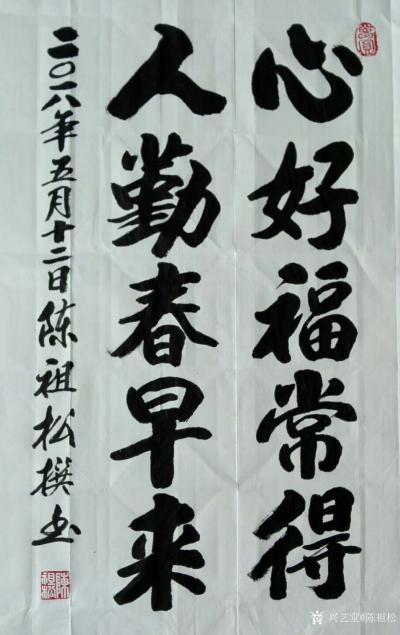 心好福常得
人勤春早来
二〇一八年五月十二日陈祖松撰书
陈祖松
兴艺堂@陈祖松